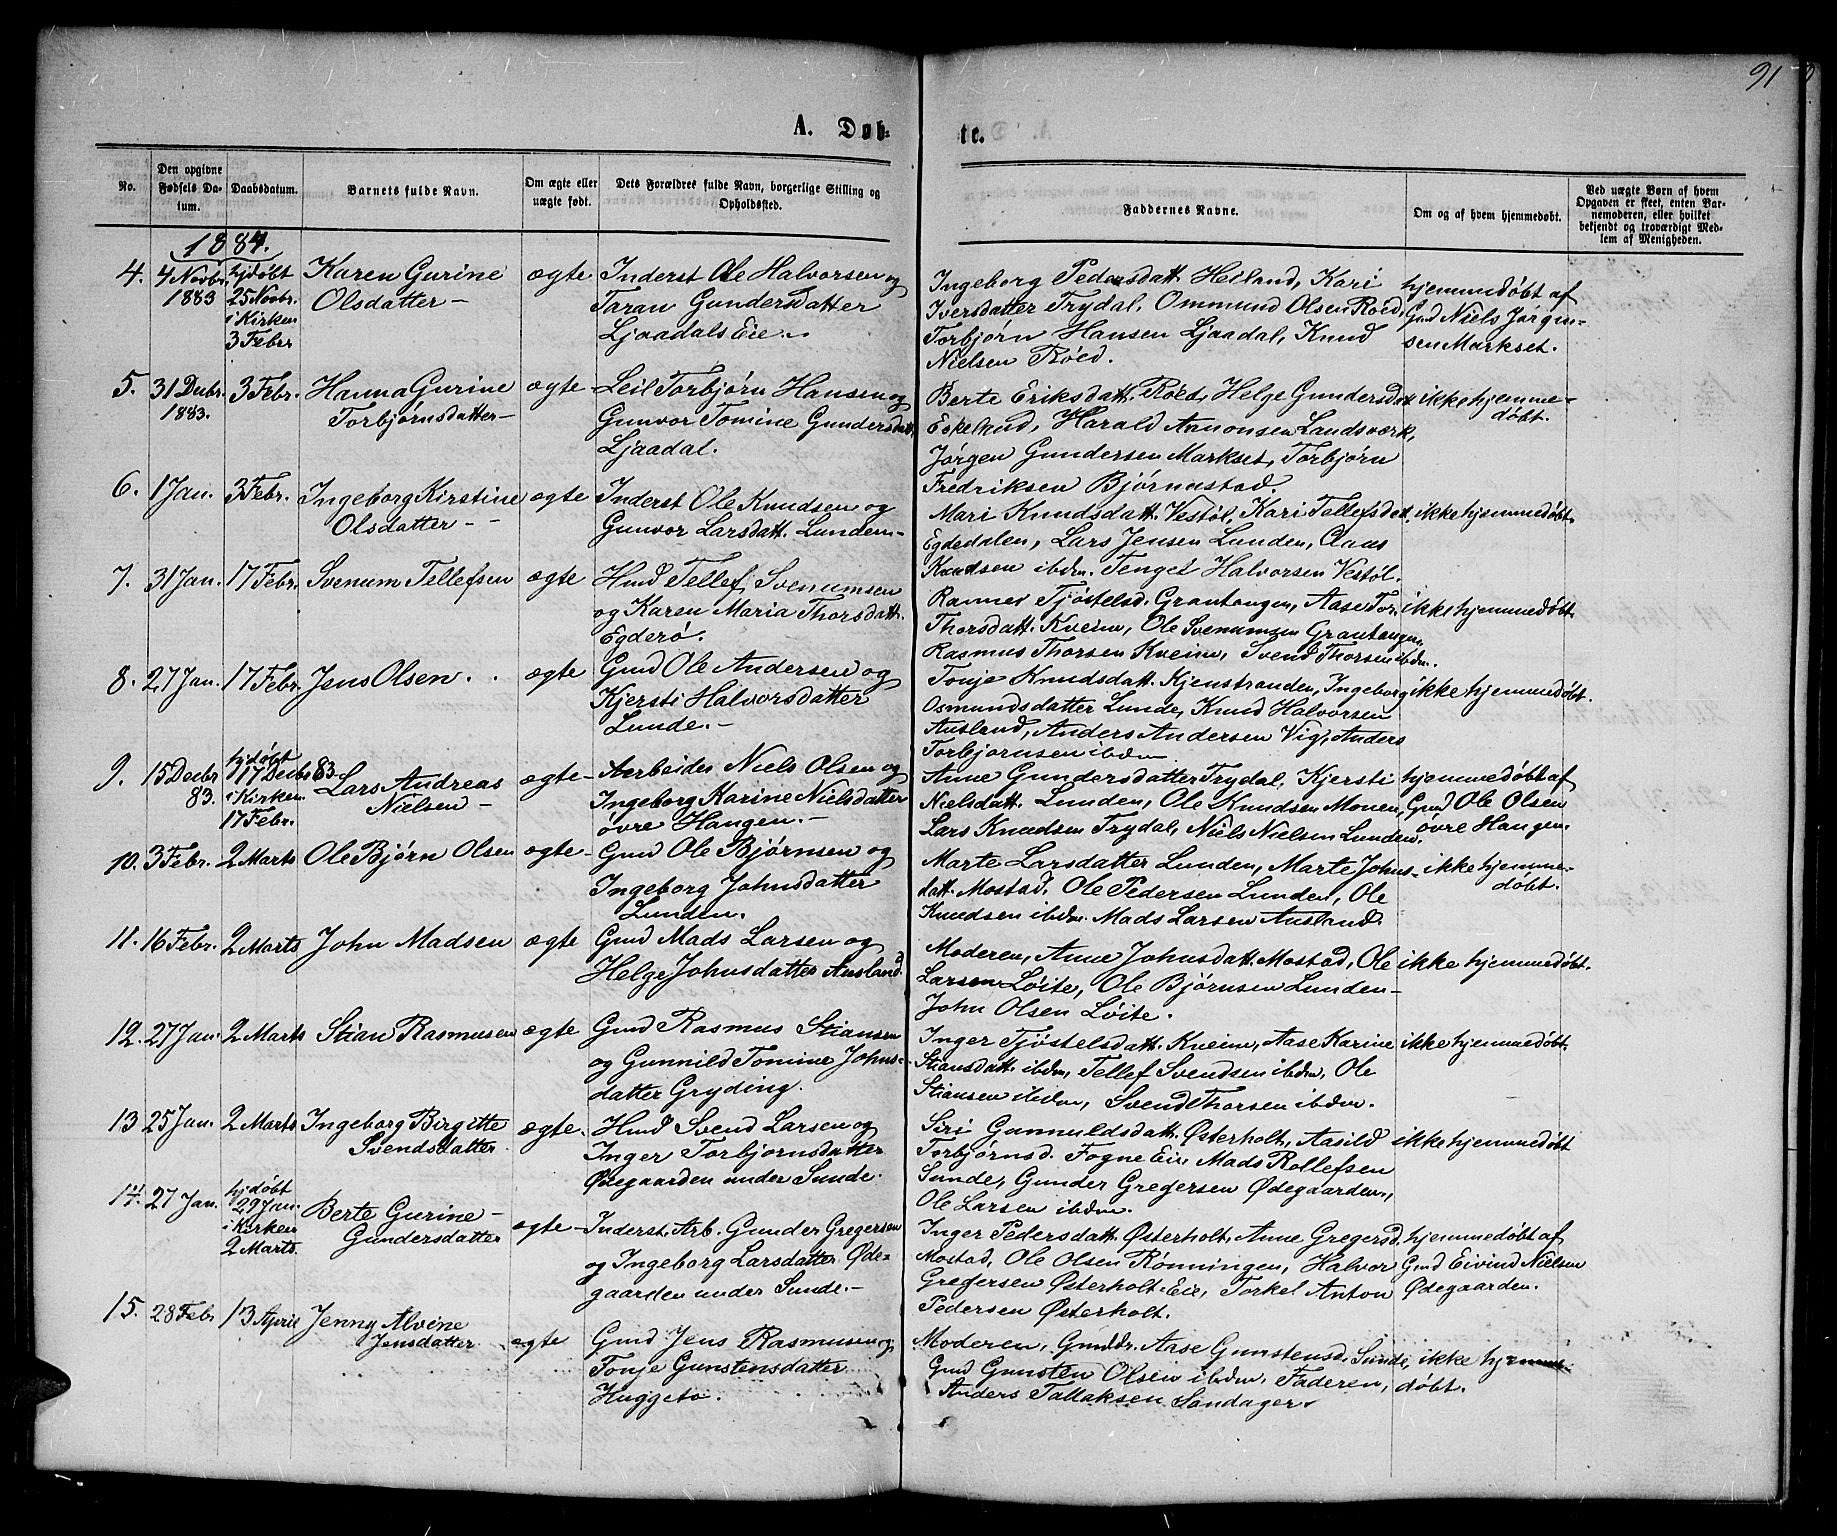 91
A. Døb-
te.
No.
Den opgivne Fødsels Da-
tum.
Daabsdatum.
Barnets fulde Navn.
Om ægte eller
uægte født.
Dets Forældres fulde Navn, borgerlige Stilling og
Opholdssted.
Faddernes Navne.
Om og af hvem hjemmedøbt.
Ved uægte Børn af hvem
Opgaven er skeet, enten Bar-
nemoderen, eller hvilket
bekjendt og troværdigt Med-
lem af Menigheden.
1884.
4.
4 Novbr.
1883
hjdøbt
25 Novbr.
i Kirken
3 Febr
Karen Gurine
Olsdatter –
ægte
Inderst Ole Halvorsen og
Taran Gundersdatter
Ljaadals Eie. –
Ingeborg Pedersdatt. Heiland, Kari
Iversdatter Trydal, Ommund Olsen Røed,
Torbjørn Hansen Ljaadal, Knud
Nielsen Røed.
hjemmedøbt af
Gmd Niels Jørgen-
sen Markset.
5.
31 Decbr.
1883.
3 Febr.
Hanna Gurine
Torbjørnsdatter –
ægte
Leil Torbjørn Hansen og
Gunvor Tomine Gundersdatt.
Ljaadal.
Berte Eriksdatt. Røed, Helge Gundersdatt
Eskelund, Harald Aanonsen Landsværk,
Jørgen Gundersen Markset, Torbjørn
Fredriksen Bjørnestad
ikke hjemme-
døbt.
6.
1 Jan.
3 Febr.
Ingeborg Kirstine
Olsdatter – –
ægte
Inderst Ole Knudsen og
Gunvor Larsdatt. Lunden –
Mari Knudsdatt. Vestøl, Kari Tellefsdatt,
Egdedalen, Lars Jensen Lunden, Claus
Knudsen ibdm. Tenges Halvorsen Vestøl.
ikke hjemmedøbt.
7.
31 Jan.
17 Febr.
Svenum Tellefsen
ægte
Hmd Tellef Svenumsen
og Karen Maria Thorsdatt.
Egderø.
Ranner Tjøstelsd. Grautangen, Aase Tor.
Thorsdatt. Kveim, Ole Svenumsen Grautangen,
Rasmus Thorsen Kveim, Svend Thorsen ibdm.
ikke hjemmedøbt.
8.
27 Jan.
17 Febr.
Jens Olsen . .
ægte
Gmd Ole Andersen og
Kjersti Halvorsdatter
Lunde. –
Tonje Knudsdatt. Kjenstranden, Ingeborg
Osmundsdatter Lunde, Knud Halvorsen
Ausland, Anders Andersen Vig, Anders
Torbjørnsen ibdm
ikke hjemmedøbt.
9.
15 Decbr
83.
hjdøbt
17 Decbr 83
i Kirken
17 Febr.
Lars Andreas
Nielsen –
ægte –
Arbeider Niels Olsen og
Ingeborg Karine Nielsdatter
øvre Haugen. –
Anne Gundersdatter Trydal, Kjersti
Nielsdatt. Lunden, Ole Knudsen Monen,
Lars Knudsen Trydal, Niels Nielsen Lunden.
hjemmedøbt af
Gmd Ole Olsen
øvre Haugen.
10.
3 Febr.
2 Marts
Ole Bjørn Olsen
ægte –
Gmd Ole Bjørnsen og
Ingeborg Johnsdatter
Lunden.
Marte Larsdatter Lunden, Marte Johns-
datt. Mostad, Ole Pedersen Lunden, Ole
Knudsen ibdm. Mads Larsen Ausland.
ikke hjemme-
døbt.
11.
16 Febr.
2 Marts
John Madsen
ægte
Gmd Mads Larsen og
Helge Johnsdatter Ausland.
Moderen, Anne Johnsdatt. Mostad, Ole
Larsen Løite, Ole Bjørnsen Lunden –
John Olsen Løite.
ikke hjemmedøbt.
12.
27 Jan.
2 Marts
Stian Rasmusen
ægte
Gmd Rasmus Stiansen
og Gunnild Tomine Johns-
datter Gryding.
Inger Tjøstelsdatt. Kveim, Aase Karine
Stiansdatt. ibdm, Tellef Svendsen ibdm, Ole
Stiansen ibdm, Svend Thorsen ibdm.
ikke hjemmedøbt.
13
25 Jan.
2 Marts
Ingeborg Birgitte
Svendsdatter
ægte.
Hmd Svend Larsen og
Inger Torbjørnsdatter
Ødegaarden under Sunde.
Siri Gunnuldsdatt. Østerholt, Aasild
Torbjørnsd. Fogne Eie, Mads Rollefsen
Sunde, Gunder Gregersen Ødegaarden,
Ole Larsen ibdm.
ikke hjemmedøbt
14.
27 Jan.
hjdøbt
29 Jan.
i Kirken
2 Marts
Berte Gurine –
Gundersdatter
ægte –
Inderst, Arb. Gunder Gregersen
og Ingeborg Larsdatter Øde-
gaarden under Sunde. –
Inger Pedersdatt. Østerholt, Anne Gregersd.
Mostad, Ole Olsen Rønningen, Halvor
Gregersen Østerholt Eie, Torkel Anton
Pedersen Østerholt.
hjemmedøbt af
Gmd Eivind Nielsen
Ødegaarden.
15.
28 Febr
13 April
Jenny Alvine
Jensdatter
ægte
Gmd Jens Rasmusen og
Tonje Gunstensdatter
Huggeto.
Moderen, Gmddr. Aase Gunstensd. Sunde,
Gmd Gunsten Olsen ibdm, Faderen,
Anders Tallaksen Søndager.
ikke hjemme-
døbt.